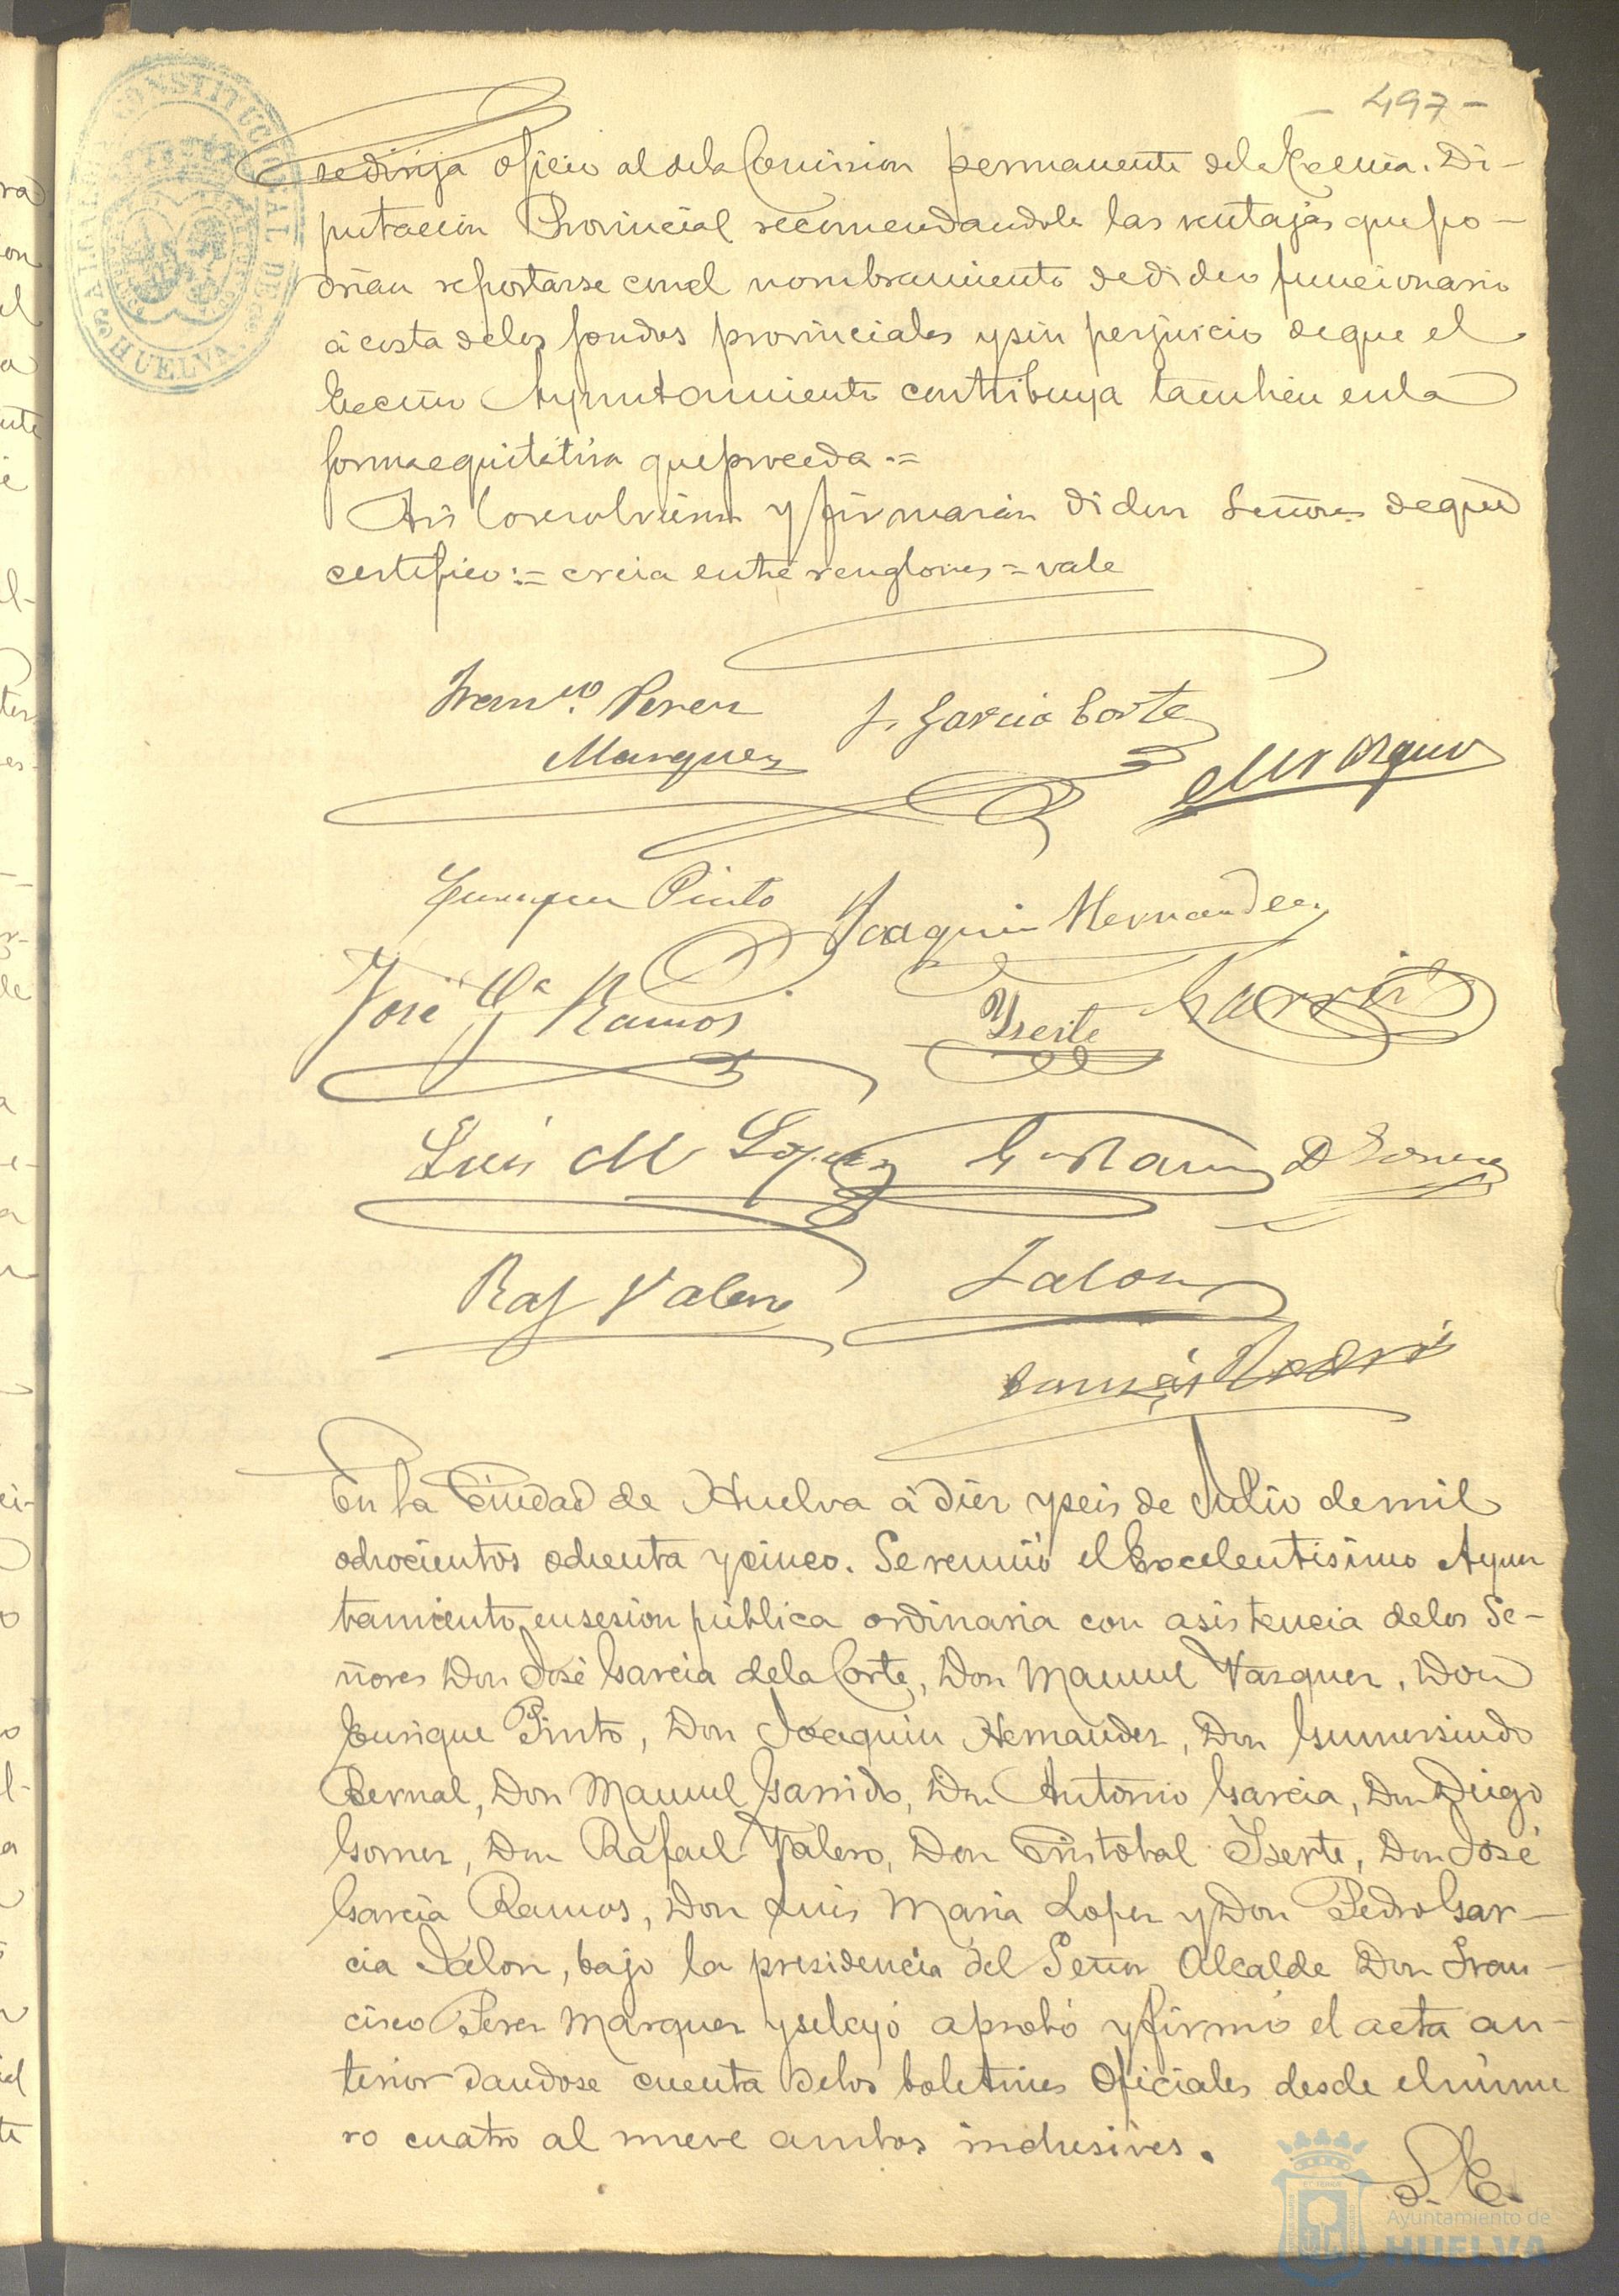 - 497 -
ALCALDIA CONSTITUCIONAL DE HUELVA
se dirija oficio al de la Comision permanente de la Excma. Di-
putacion Provincial recomendandole las ventajas que po-
drian reportarse con el nombramiento de dicho funcionario
á costa de los fondos provinciales y sin perjuicio de que el
Excmo Ayuntamiento contribuya tambien en la
forma equitativa que proceda.=
Asi lo resolvieron y firmarán dichos Señores de que
certifico:= creia entre renglones = vale
Franco. Perez
Marquez
J. Garcia Corte
M Vazquez
Enrique Pinto
Joaquin Hernandez
José Ga Ramos
Yserte
Garrido
Luis M Lopez
D Gomez
Raf Valero
Jalon
En la Ciudad de Huelva á diez y seis de Julio de mil
ochocientos ochenta y cinco. Se reunió el Excelentisimo Ayun
tamiento en sesion pública ordinaria con asistencia de los Se-
ñores Don José Garcia de la Corte, Don Manuel Vazquez, Don
Enrique Pinto, Don Joaquin Hernandez, Don Gumersindo
Bernal, Don Manuel Garrido, Don Antonio Garcia, Don Diego
Gomez, Don Rafael Valero, Don Cristobal Yserte, Don José
Garcia Ramos, Don Luis Maria Lopez y Don Pedro Gar-
cia Jalon, bajo la presidencia del Señor Alcalde Don Fran-
cisco Perez Marquez y se leyó aprobó y firmó el acta an-
terior dandose cuenta de los boletines Oficiales desde el núme
ro cuatro al nueve ambos inclusives.
S. E.
Ayuntamiento de
HUELVA